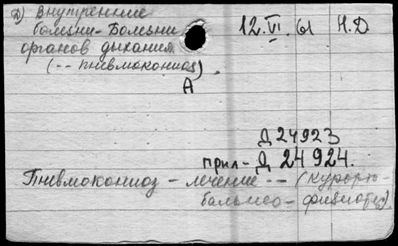 Д) Внутренние
болезни-Болезни
органов дыхания
(-- пневмокониоз).
А
12.VI.61 Н.Д
Д 24923
прил-Д 24924.
Пневмокониоз - лечение -- (курорты-
бальнео-физиотер).